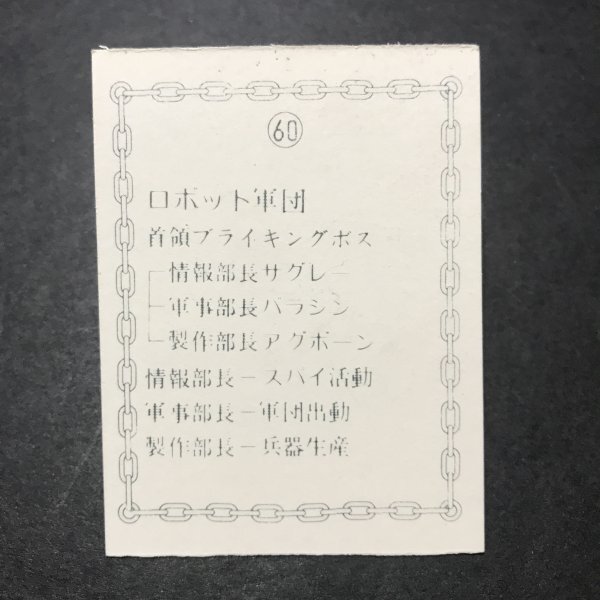 60
ロボット軍団
首領ブライキングボス
情報部長サグレー
軍事部長バラシン
製作部長アグボーン
情報部長ースパイ活動
軍事部長ー軍団出動
製作部長ー兵器生産